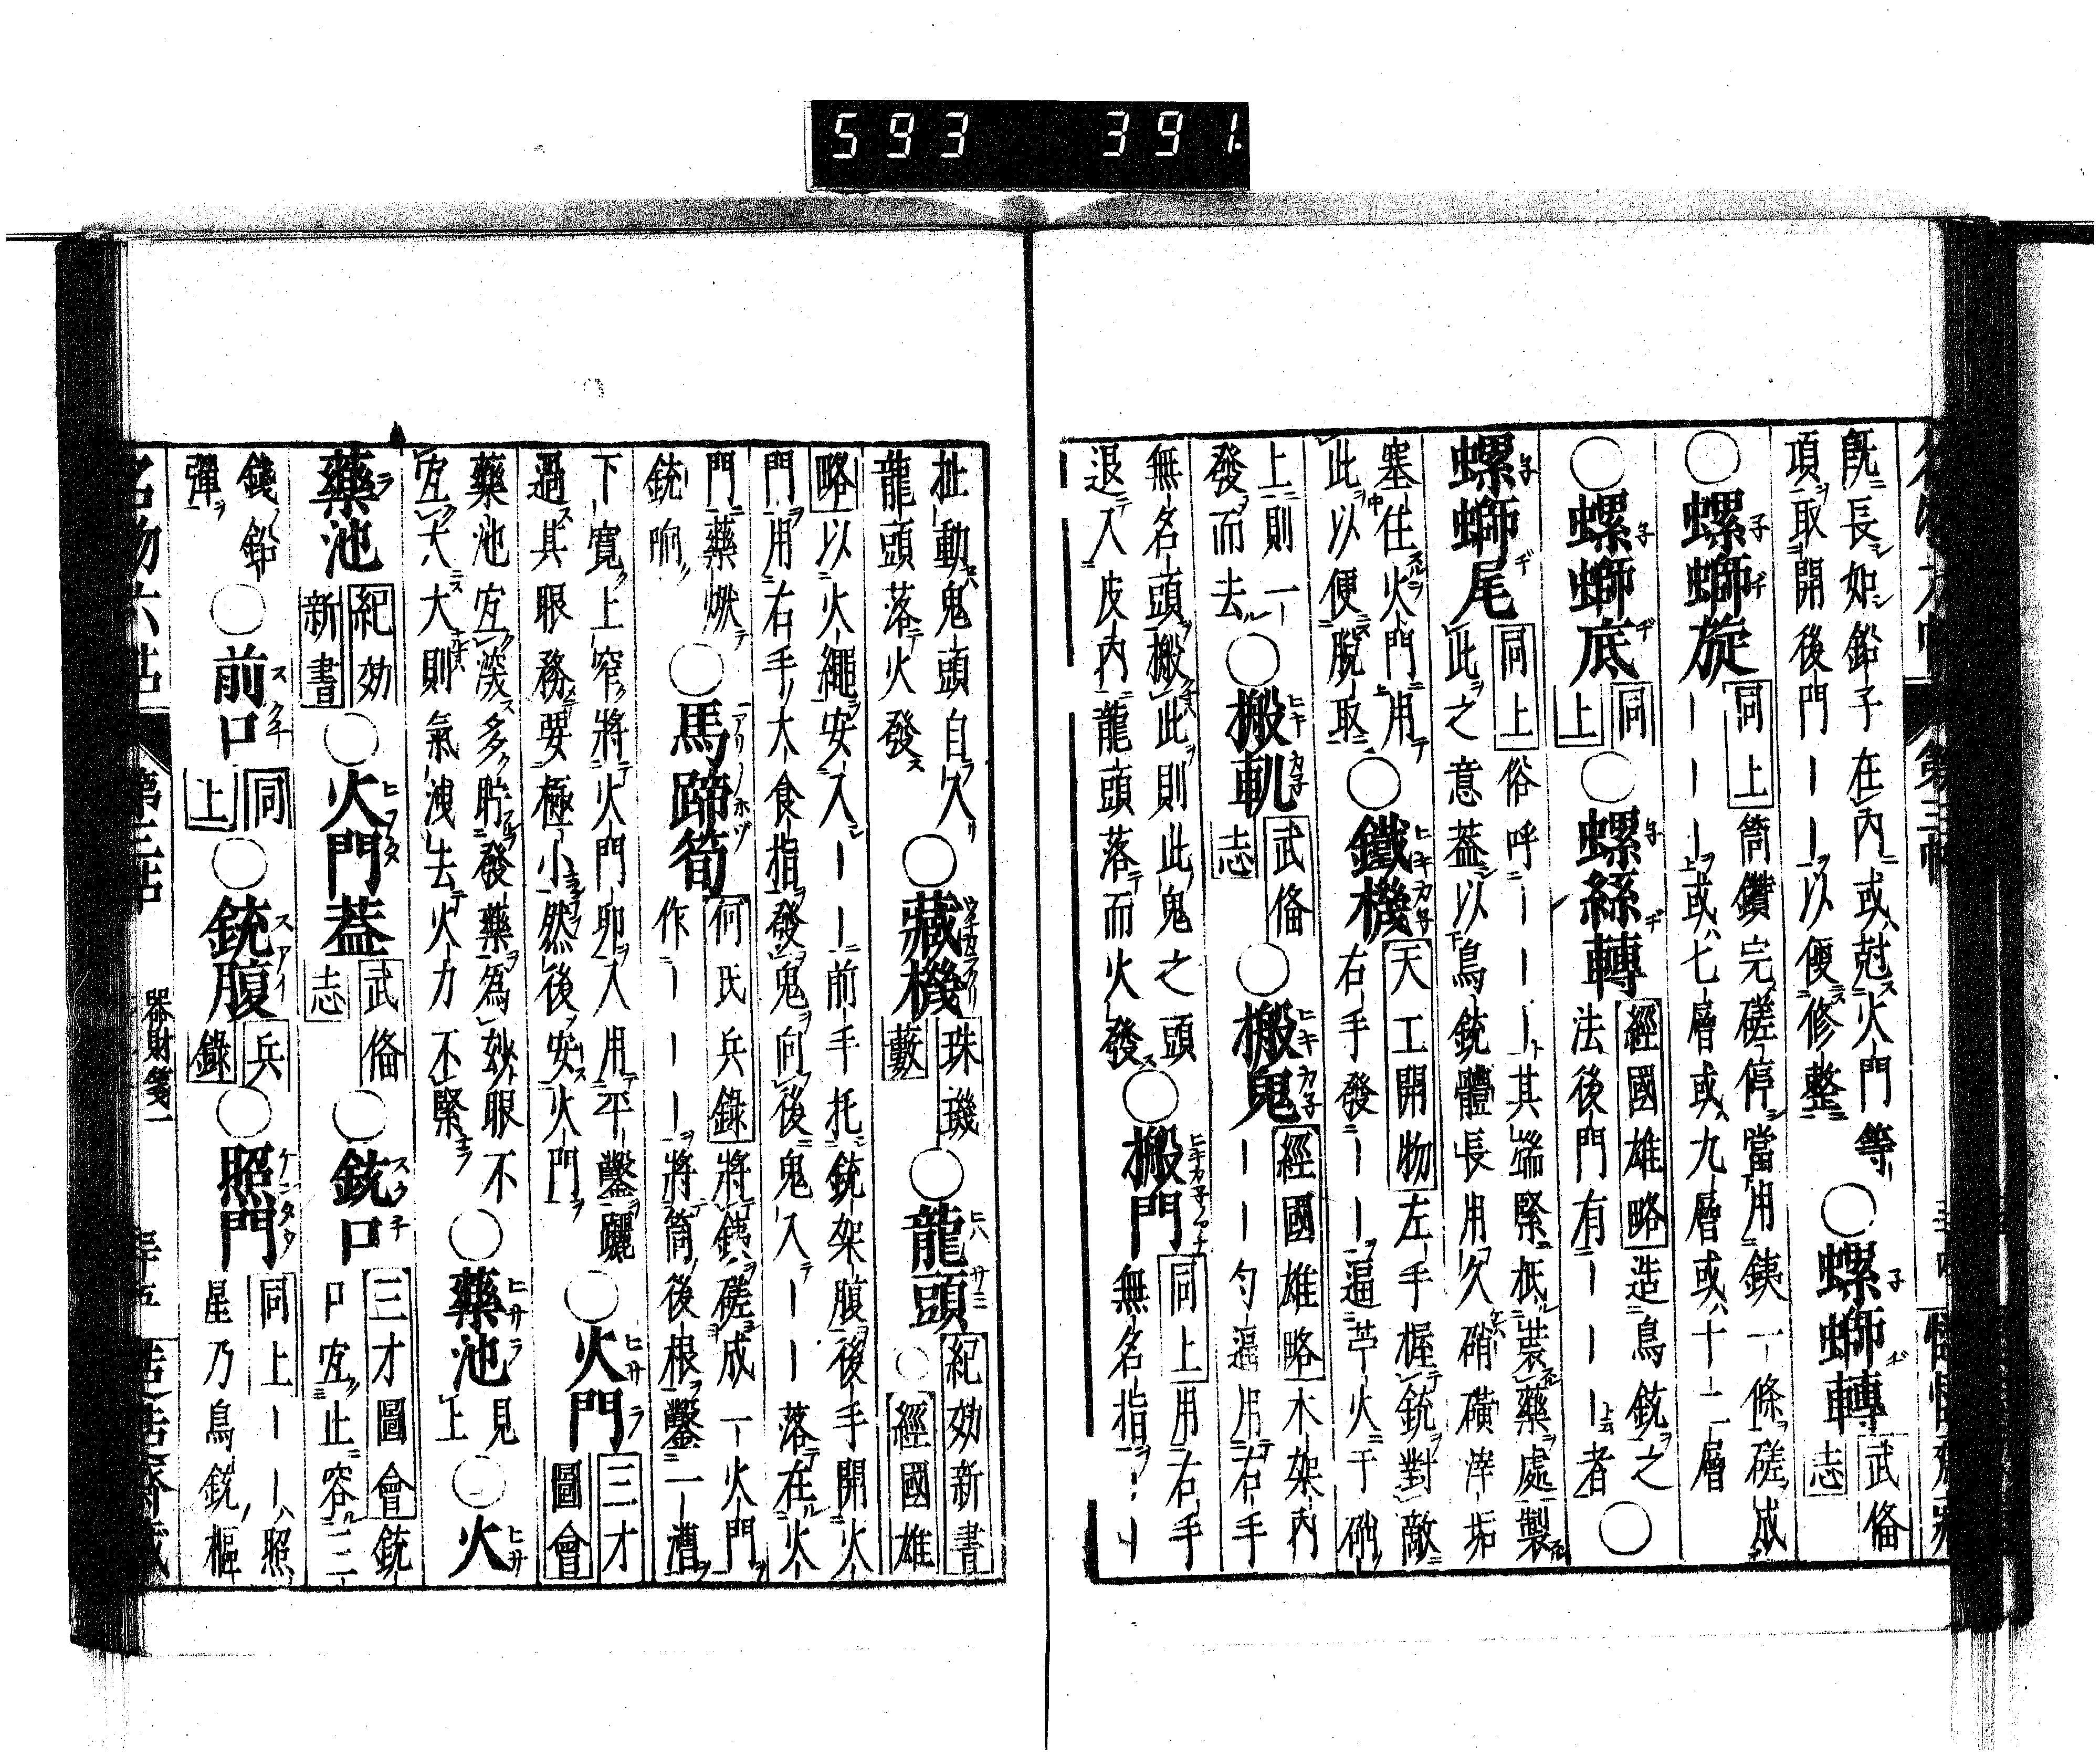 593 391
既長如鉛子在内或尅火門等
項取開後門ーーー以便修整
○螺螄轉 武俻志
○螺螄旋 同上
筒鑽完磋停當用銕一條磋成
ーーー或七層或九層或十二層
○螺螄底 同上
○螺絲轉 經國雄略
造鳥銃之
法後門有ーーー者
○螺螄尾 同上
俗呼ーーー其端緊抵裝藥處製
此之意葢以鳥銃體長用久硝磺滓垢
塞住火門用
此以便脫取
○鐵機 天工開物
左手握銃對敵
右手發ーー逼苧火于硝
上則一
發而去
○搬軓 武俻志
○搬鬼 經國雄略
木架内
ーーー勺逼用右手
無名頭搬此則此鬼之頭
退入皮内龍頭落而火發
○搬門 同上
用右手
無名指ーー
扯動鬼頭自入
龍頭落火發
○藏機 珠璣藪
○龍頭 紀効新書
○經國雄略
以火繩安入ーー前手托銃架腹後手開火
門用右手大食指發鬼向後鬼入ーー落在火
門藥燃
銃响
○馬蹄筍 何氏兵錄
將銕磋成一火門
作ーーー將筒後根鑿一漕
下寬上窄將火門卯入用平鑿䥯
過其眼務要極小然後安火門
○火門 三才圖會
藥池宜深多貯發藥為妙眼不
宜大大則氣洩去火力不緊
○藥池 見上
○火藥池 紀効新書
○火門葢 武俻志
○銃口 三才圖會
銃
口宜止容三
錢鉛
彈
○前口 同上
○銃腹 兵錄
○照門 同上
ーー照
星乃鳥銃樞
名物六帖 第三帖 器財箋一